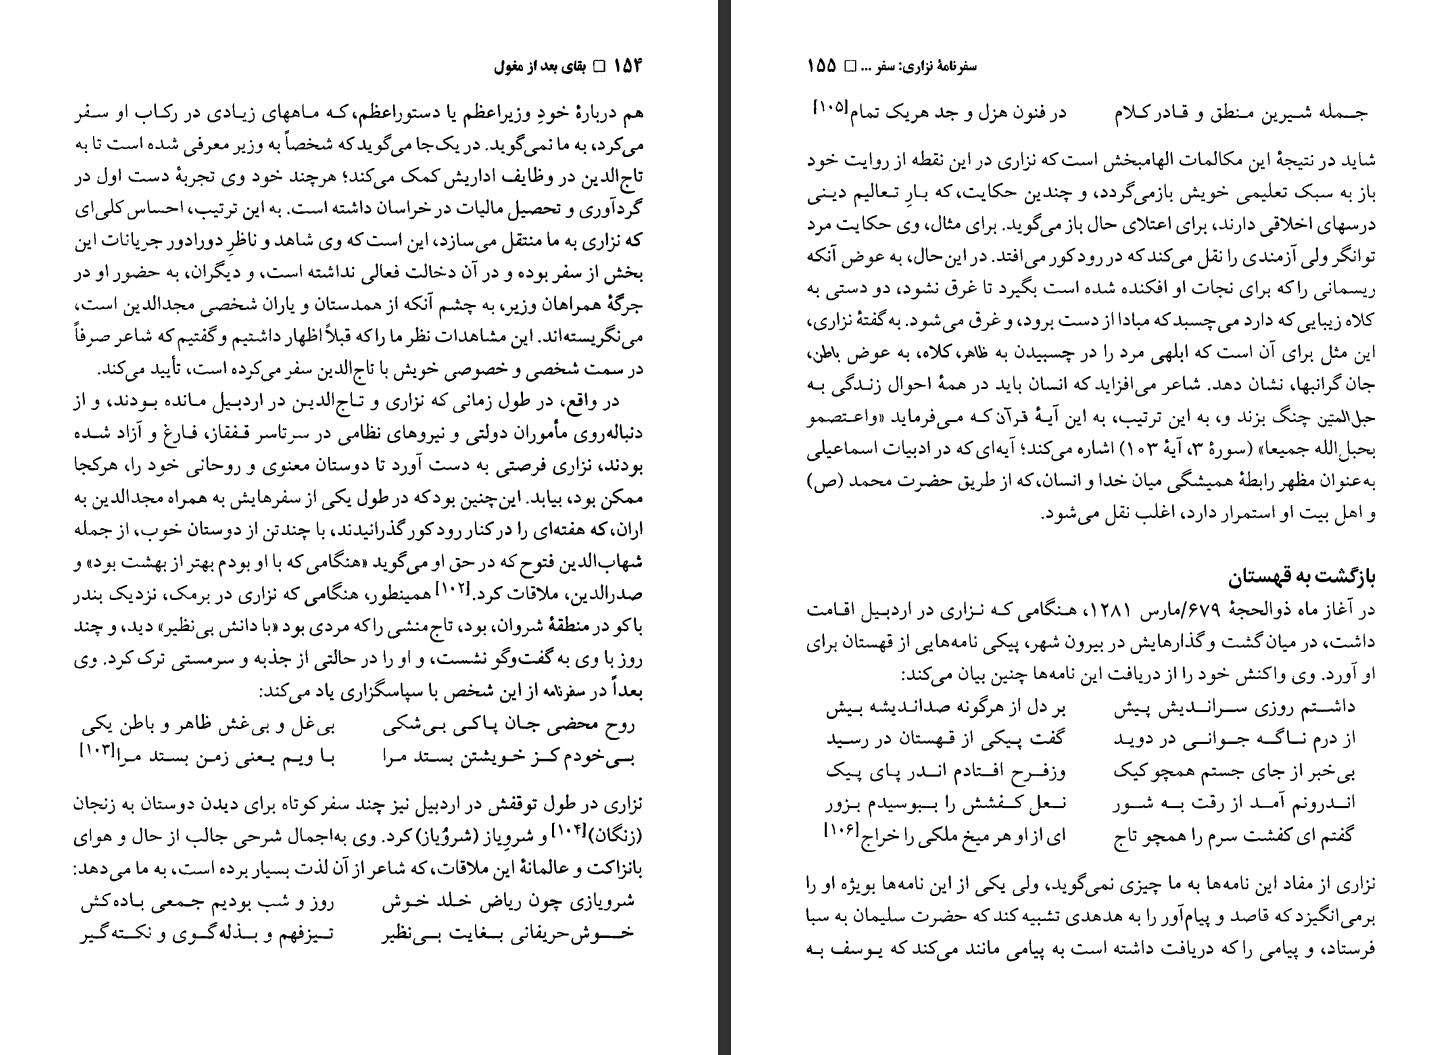 ۱۵۴ □ بقای بعد از مغول
هم دربارهٔ خودِ وزیراعظم یا دستوراعظم، که ماههای زیادی در رکاب او سفر
می‌کرد، به ما نمی‌گوید. در یک‌جا می‌گوید که شخصاً به وزیر معرفی شده است تا به
تاج‌الدین در وظایف اداریش کمک می‌کند؛ هرچند خود وی تجربهٔ دست اول در
گردآوری و تحصیل مالیات در خراسان داشته است. به این ترتیب، احساس کلی‌ای
که نزاری به ما منتقل می‌سازد، این است که وی شاهد و ناظرِ دورادور جریانات این
بخش از سفر بوده و در آن دخالت فعالی نداشته است، و دیگران، به حضور او در
جرگهٔ همراهان وزیر، به چشم آنکه از همدستان و یاران شخصی مجدالدین است،
می‌نگریسته‌اند. این مشاهدات نظر ما را که قبلاً اظهار داشتیم و گفتیم که شاعر صرفاً
در سمت شخصی و خصوصی خویش با تاج‌الدین سفر می‌کرده است، تأیید می‌کند.
در واقع، در طول زمانی که نزاری و تاج‌الدین در اردبیل مانده بودند، و از
دنباله‌روی مأموران دولتی و نیروهای نظامی در سرتاسر قفقاز، فارغ و آزاد شده
بودند، نزاری فرصتی به دست آورد تا دوستان معنوی و روحانی خود را، هرکجا
ممکن بود، بیابد. این‌چنین بود که در طول یکی از سفرهایش به همراه مجدالدین به
اران، که هفته‌ای را در کنار رود کور گذرانیدند، با چندتن از دوستان خوب، از جمله
شهاب‌الدین فتوح که در حق او می‌گوید «هنگامی که با او بودم بهتر از بهشت بود» و
صدرالدین، ملاقات کرد.[۱۰۲] همینطور، هنگامی که نزاری در برمک، نزدیک بندر
باکو در منطقهٔ شروان، بود، تاج‌منشی را که مردی بود «با دانش بی‌نظیر» دید، و چند
روز با وی به گفت‌وگو نشست، و او را در حالتی از جذبه و سرمستی ترک کرد. وی
بعداً در سفرنامه از این شخص با سپاسگزاری یاد می‌کند:
روح محضی جان پاکی بی‌شکی بی‌غل و بی‌غش ظاهر و باطن یکی
بی‌خودم کز خویشتن بستد مرا با ویم یعنی زمن بستد مرا[۱۰۳]
نزاری در طول توقفش در اردبیل نیز چند سفر کوتاه برای دیدن دوستان به زنجان
(زنگان)[۱۰۴] و شروِیاز (شرؤیاز) کرد. وی به‌اجمال شرحی جالب از حال و هوای
بانزاکت و عالمانهٔ این ملاقات، که شاعر از آن لذت بسیار برده است، به ما می‌دهد:
شرویازی چون ریاض خلد خوش روز و شب بودیم جمعی باده‌کش
خوش‌حریفانی بغایت بی‌نظیر تیزفهم و بذله‌گوی و نکته‌گیر
سفرنامهٔ نزاری: سفر ... □ ۱۵۵
جمله شیرین منطق و قادر کلام در فنون هزل و جد هریک تمام[۱۰۵]
شاید در نتیجهٔ این مکالمات الهامبخش است که نزاری در این نقطه از روایت خود
باز به سبک تعلیمی خویش بازمی‌گردد، و چندین حکایت، که بارِ تعالیم دینی
درسهای اخلاقی دارند، برای اعتلای حال باز می‌گوید. برای مثال، وی حکایت مرد
توانگر ولی آزمندی را نقل می‌کند که در رود کور می‌افتد. در این‌حال، به عوض آنکه
ریسمانی را که برای نجات او افکنده شده است بگیرد تا غرق نشود، دو دستی به
کلاه زیبایی که دارد می‌چسبد که مبادا از دست برود، و غرق می‌شود. به گفتهٔ نزاری،
این مثل برای آن است که ابلهی مرد را در چسبیدن به ظاهر، کلاه، به عوض باطن،
جان گرانبها، نشان دهد. شاعر می‌افزاید که انسان باید در همهٔ احوال زندگی به
حبل‌المتین چنگ بزند و، به این ترتیب، به این آیهٔ قرآن که می‌فرماید «واعتصمو
بحبل‌الله جمیعا» (سورهٔ ۳، آیهٔ ۱۰۳) اشاره می‌کند؛ آیه‌ای که در ادبیات اسماعیلی
به‌عنوان مظهر رابطهٔ همیشگی میان خدا و انسان، که از طریق حضرت محمد (ص)
و اهل بیت او استمرار دارد، اغلب نقل می‌شود.
بازگشت به قهستان
در آغاز ماه ذوالحجهٔ ۶۷۹/مارس ۱۲۸۱، هنگامی که نزاری در اردبیل اقامت
داشت، در میان گشت و گذارهایش در بیرون شهر، پیکی نامه‌هایی از قهستان برای
او آورد. وی واکنش خود را از دریافت این نامه‌ها چنین بیان می‌کند:
داشتم روزی سراندیش پیش بر دل از هرگونه صداندیشه بیش
از درم ناگه جوانی در دوید گفت پیکی از قهستان در رسید
بی‌خبر از جای جستم همچو کیک وزفرح افتادم اندر پای پیک
اندرونم آمد از رقت به شور نعل کفشش را ببوسیدم بزور
گفتم ای کفشت سرم را همچو تاج ای از او هر میخ ملکی را خراج[۱۰۶]
نزاری از مفاد این نامه‌ها به ما چیزی نمی‌گوید، ولی یکی از این نامه‌ها بویژه او را
برمی‌انگیزد که قاصد و پیام‌آور را به هدهدی تشبیه کند که حضرت سلیمان به سبا
فرستاد، و پیامی را که دریافت داشته است به پیامی مانند می‌کند که یوسف به